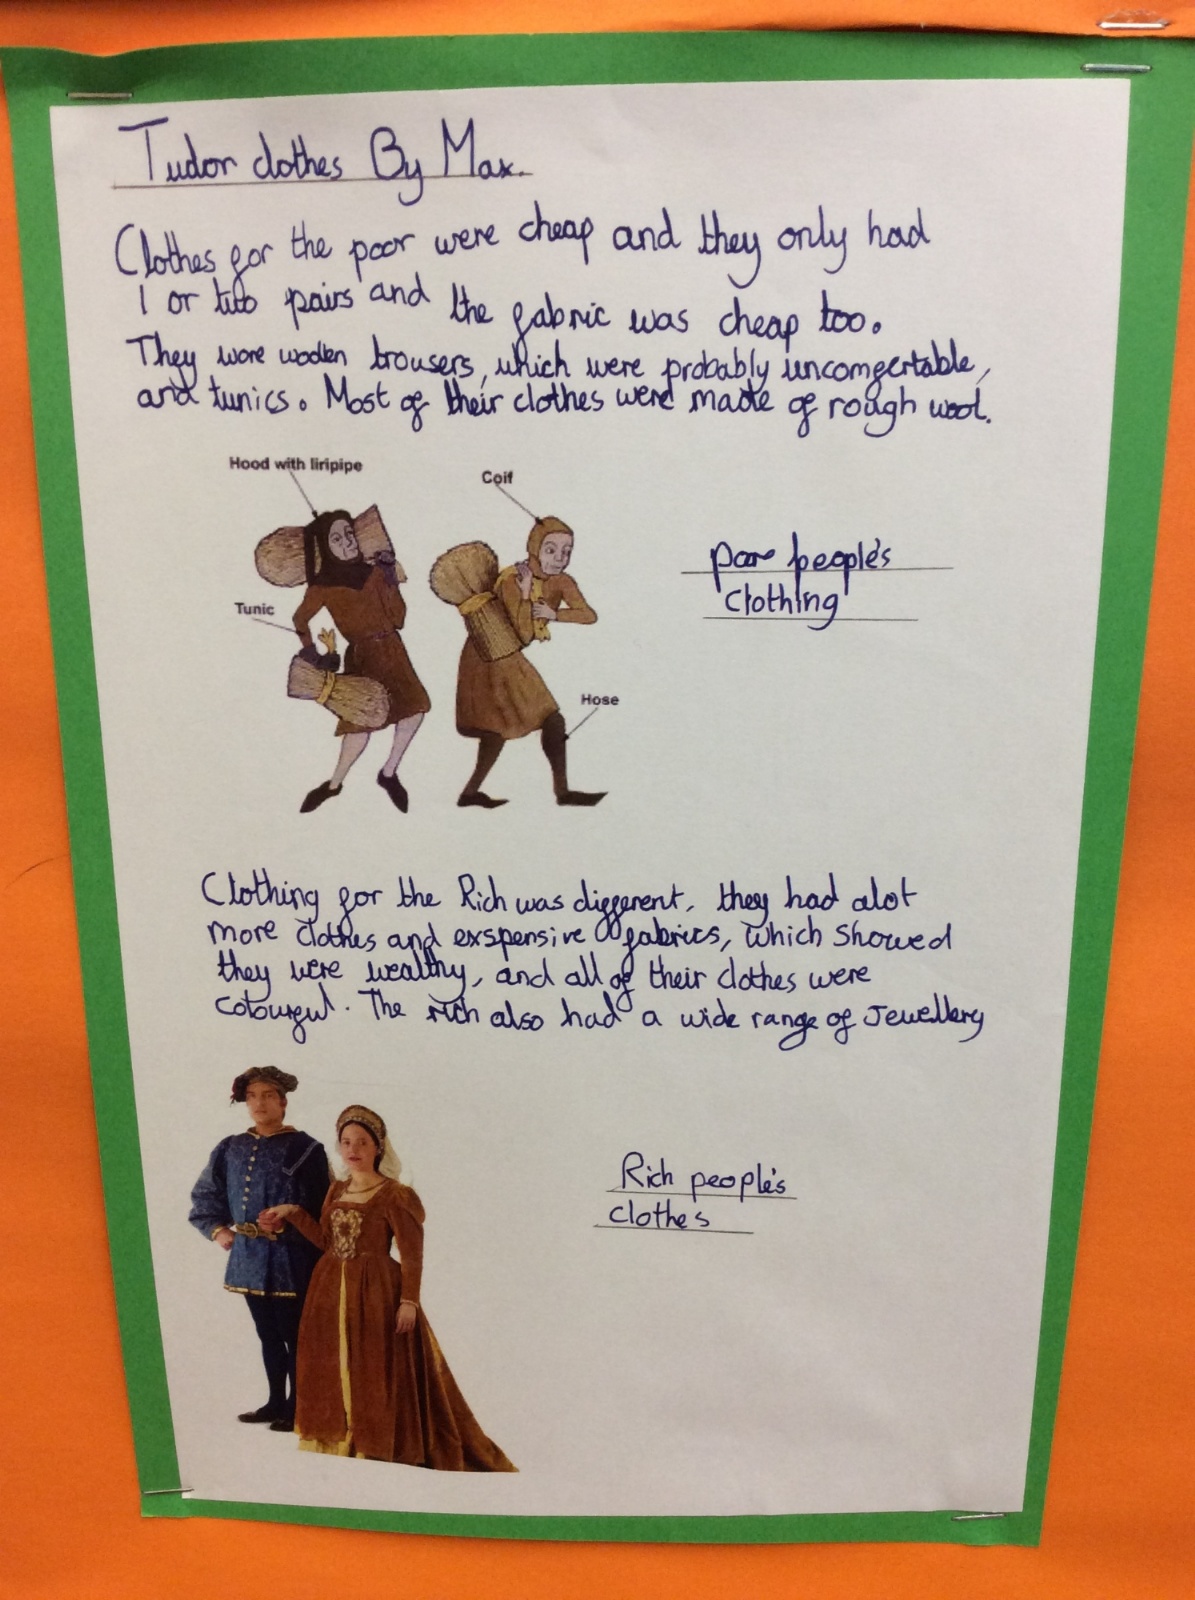 Tudor clothes By Max.
Clothes for the poor were cheap and they only had
1 or two pairs and the fabric was cheap too.
They wore woollen trousers, which were probably uncomfertable,
and tunics. Most of their clothes were made of rough wool.
Hood with liripipe
Coif
Tunic
Hose
poor people's
clothing
Clothing for the Rich was different, they had alot
more clothes and exspensive fabrics, which showed
they were wealthy, and all of their clothes were
colourful. The rich also had a wide range of Jewellery
Rich people's
clothes